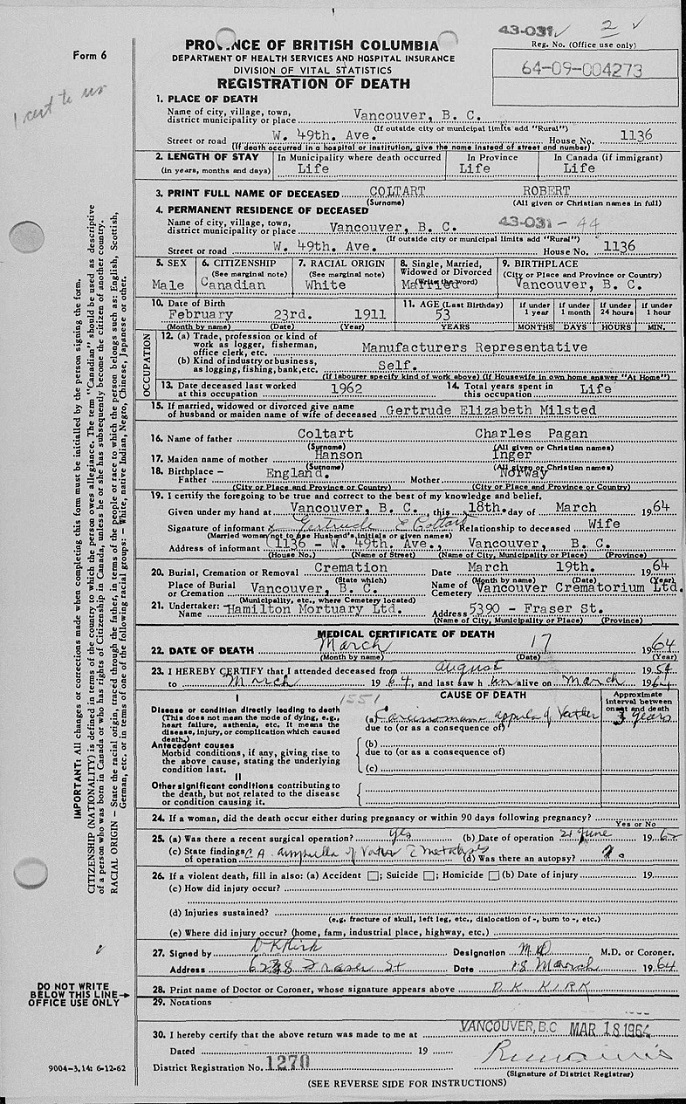 43-031 2
Form 6
PROVINCE OF BRITISH COLUMBIA
Reg. No. (Office use only)
DEPARTMENT OF HEALTH SERVICES AND HOSPITAL INSURANCE
64-09-004273
DIVISION OF VITAL STATISTICS
REGISTRATION OF DEATH
1. PLACE OF DEATH
Name of city, village, town, district municipality or place Vancouver, B. C.
(If outside city or municipal limits add "Rural")
Street or road W. 49th. Ave. House No. 1136
(If death occurred in a hospital or institution, give the name instead of street and number)
2. LENGTH OF STAY In Municipality where death occurred In Province In Canada (if immigrant)
(in years, months and days) Life Life Life
3. PRINT FULL NAME OF DECEASED COLTART ROBERT
(Surname) (All given or Christian names in full)
4. PERMANENT RESIDENCE OF DECEASED
43-031-44
Name of city, village, town, district municipality or place Vancouver, B. C.
(If outside city or municipal limits add "Rural")
Street or road W. 49th. Ave. House No. 1136
5. SEX 6. CITIZENSHIP 7. RACIAL ORIGIN 8. Single, Married, Widowed or Divorced 9. BIRTHPLACE
(See marginal note) (See marginal note) (Write the word) (City or Place and Province or Country)
Male Canadian White Married Vancouver, B. C.
10. Date of Birth 11. AGE (Last Birthday) If under 1 year If under 1 month If under 24 hours If under 1 hour
February 23rd. 1911 53
(Month by name) (Date) (Year) YEARS MONTHS DAYS HOURS MIN.
OCCUPATION
12. (a) Trade, profession or kind of work as logger, fisherman, office clerk, etc. Manufacturers Representative
(b) Kind of industry or business, as logging, fishing, bank, etc. Self.
(If labourer specify kind of work above) (If Housewife in own home answer "At Home")
13. Date deceased last worked at this occupation 1962 14. Total years spent in this occupation Life
15. If married, widowed or divorced give name of husband or maiden name of wife of deceased Gertrude Elizabeth Milsted
16. Name of father Coltart Charles Pagan
(Surname) (All given or Christian names)
17. Maiden name of mother Hanson Inger
(Surname) (All given or Christian names)
18. Birthplace – Father England. Mother Norway
(City or Place and Province or Country) (City or Place and Province or Country)
19. I certify the foregoing to be true and correct to the best of my knowledge and belief.
Given under my hand at Vancouver, B. C., this 18th. day of March 1964
Signature of informant x Gertrude E Coltart Relationship to deceased Wife
(Married woman not to use Husband's initials or given names)
Address of informant 1136 - W. 49th. Ave., Vancouver, B. C.
(House No.) (Name of Street) (Name of City, Municipality or Place) (Province)
20. Burial, Cremation or Removal Cremation Date March 19th. 1964
(State which) (Month by name) (Date) (Year)
Place of Burial or Cremation Vancouver, B. C. Name of Cemetery Vancouver Crematorium Ltd.
(Municipality, etc., where Cemetery located)
21. Undertaker: Name Hamilton Mortuary Ltd. Address 5390 - Fraser St.
(Name of City, Municipality or Place) (Province)
MEDICAL CERTIFICATE OF DEATH
22. DATE OF DEATH March 17 1964
(Month by name) (Date) (Year)
23. I HEREBY CERTIFY that I attended deceased from August 1954
to March 1964, and last saw him alive on March 1964
1551 CAUSE OF DEATH Approximate interval between onset and death
Disease or condition directly leading to death (a) Carcinoma ampulla of Vater 3 years
(This does not mean the mode of dying, e.g., heart failure, asthenia, etc. It means the disease, injury, or complication which caused death.) due to (or as a consequence of)
Antecedent causes (b)
Morbid conditions, if any, giving rise to the above cause, stating the underlying condition last. due to (or as a consequence of)
(c)
II
Other significant conditions contributing to the death, but not related to the disease or condition causing it.
24. If a woman, did the death occur either during pregnancy or within 90 days following pregnancy?
Yes or No
25. (a) Was there a recent surgical operation? yes (b) Date of operation 21 June 1962
(c) State findings of operation CA ampulla of Vater (d) Was there an autopsy? No
26. If a violent death, fill in also: (a) Accident ; Suicide ; Homicide (b) Date of injury 19
(c) How did injury occur?
(d) Injuries sustained?
(e.g. fracture of skull, left leg, etc., dislocation of -, burn to -, etc.)
(e) Where did injury occur? (home, farm, industrial place, highway, etc.)
27. Signed by D K Kirk Designation M.D M.D. or Coroner.
Address Fraser St Date 18 March 1964
28. Print name of Doctor or Coroner, whose signature appears above D. K. KIRK
29. Notations
30. I hereby certify that the above return was made to me at VANCOUVER, B.C. MAR 18 1964
Dated 19
District Registration No. 1270
(Signature of District Registrar)
(SEE REVERSE SIDE FOR INSTRUCTIONS)
IMPORTANT: All changes or corrections made when completing this form must be initialled by the person signing the form.
CITIZENSHIP (NATIONALITY) is defined in terms of the country to which the person owes allegiance. The term "Canadian" should be used as descriptive
of a person who was born in Canada or who has rights of Citizenship in Canada, unless he or she has subsequently become the citizen of another country.
RACIAL ORIGIN – State the racial origin, traced through the father, in terms of the people or race to which the person belongs such as: English, Scottish,
German, etc. or in terms of one of the following racial groups: White, native Indian, Negro, Chinese, Japanese or other.
DO NOT WRITE
BELOW THIS LINE→
OFFICE USE ONLY
9004-3,14: 6-12-62